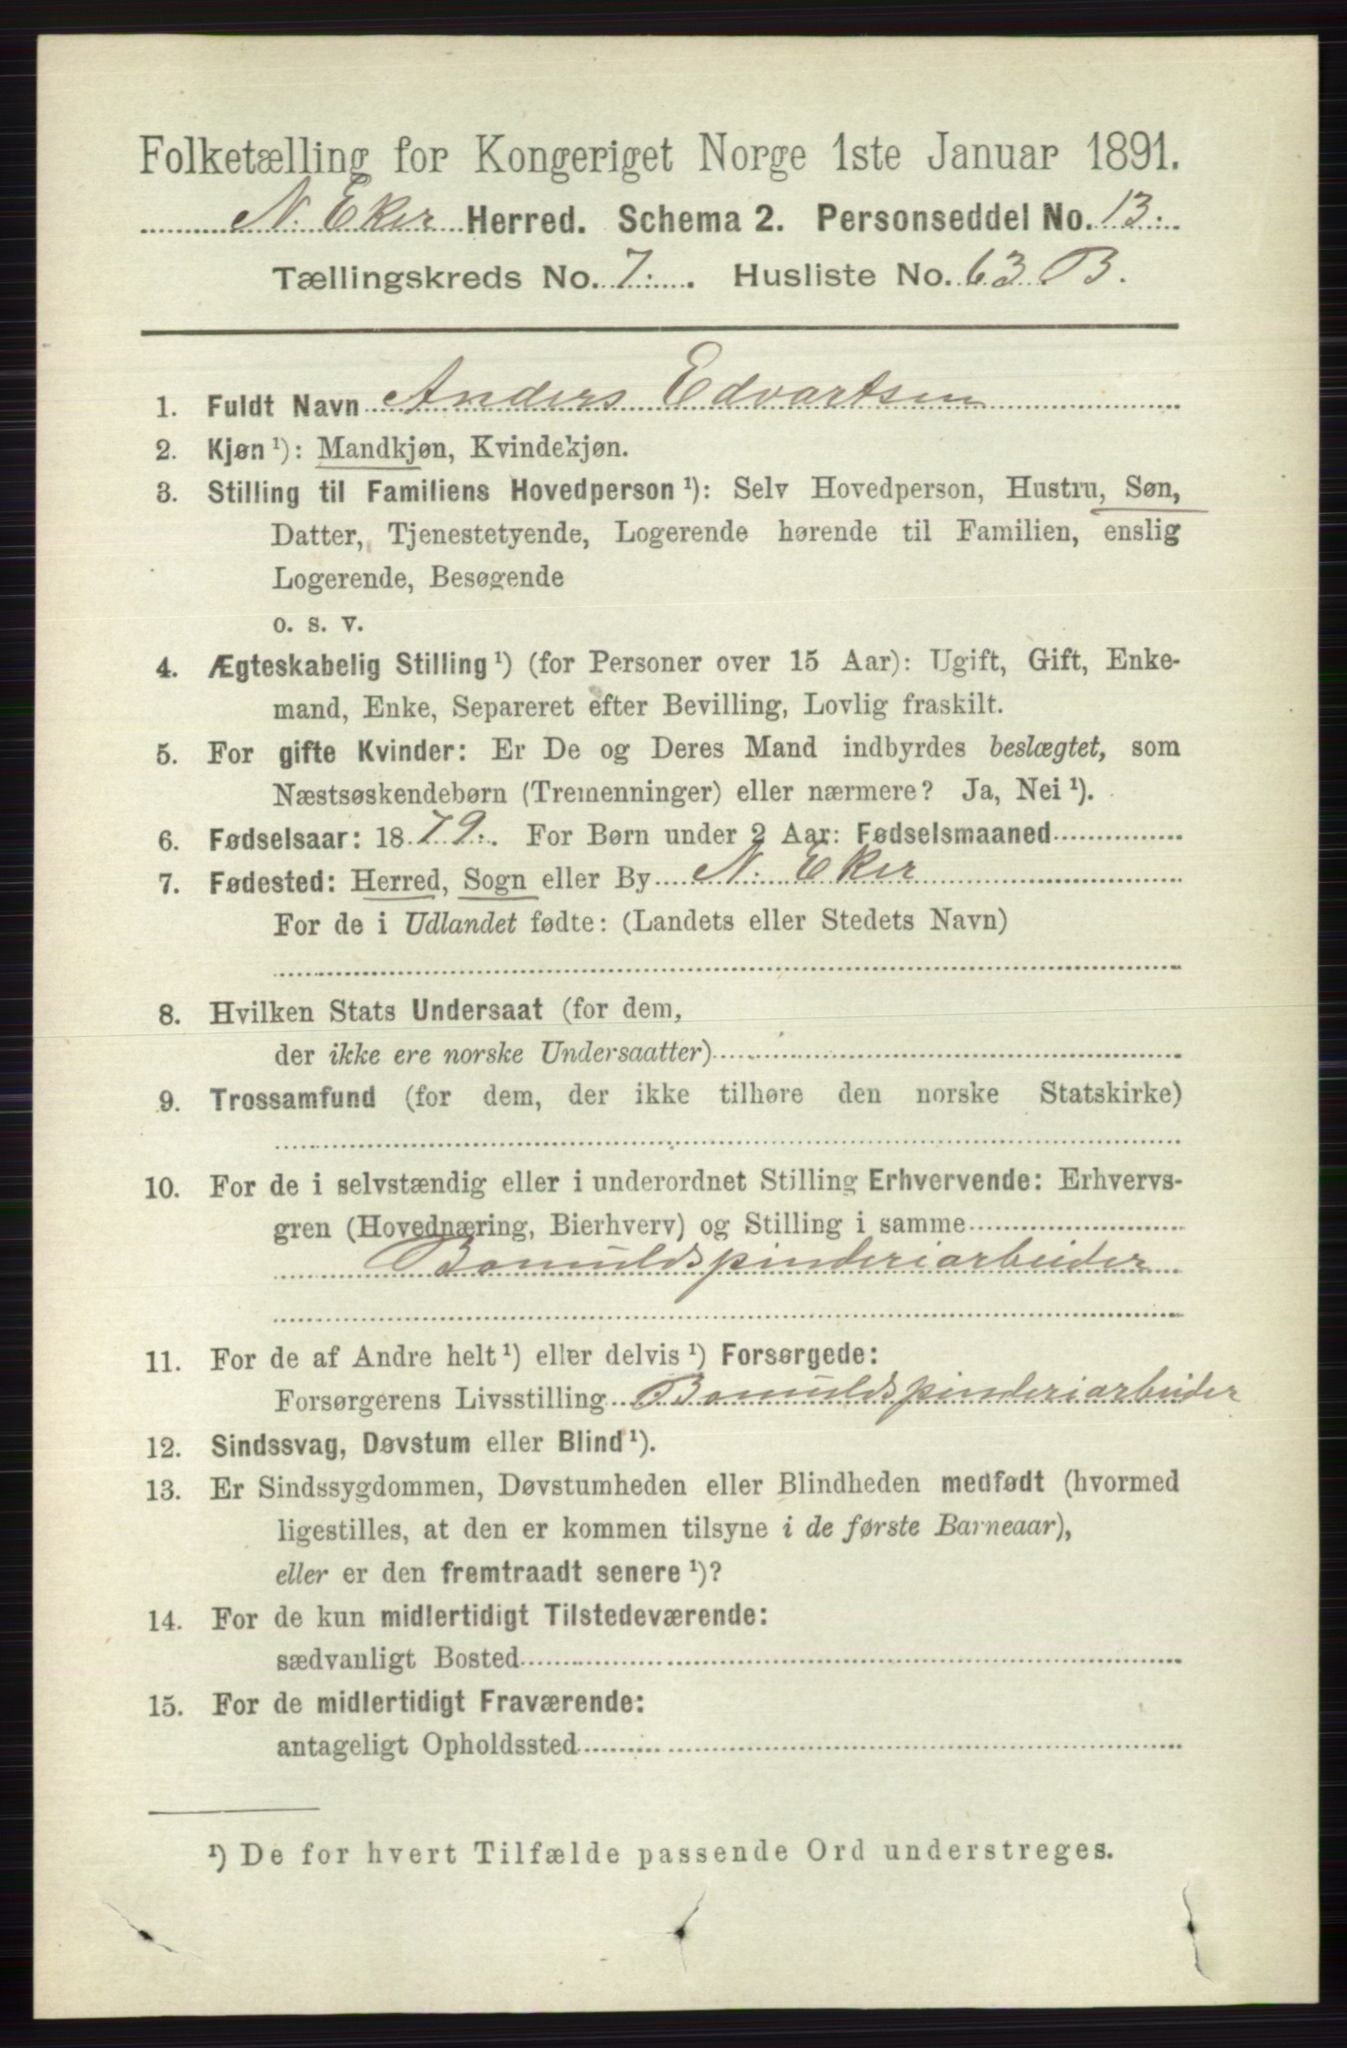 Folketælling for Kongeriget Norge 1ste Januar 1891.
N. Eker Herred. Schema 2. Personseddel No. 13.
Tællingskreds No. 7. Husliste No. 63 B.
1. Fuldt Navn Anders Edvartsen
2. Kjøn ¹): Mandkjøn, Kvindekjøn.
3. Stilling til Familiens Hovedperson ¹): Selv Hovedperson, Hustru, Søn,
Datter, Tjenestetyende, Logerende hørende til Familien, enslig
Logerende, Besøgende
o. s. v.
4. Ægteskabelig Stilling ¹) (for Personer over 15 Aar): Ugift, Gift, Enke-
mand, Enke, Separeret efter Bevilling, Lovlig fraskilt.
5. For gifte Kvinder: Er De og Deres Mand indbyrdes beslægtet, som
Næstsøskendebørn (Tremenninger) eller nærmere? Ja, Nei ¹).
6. Fødselsaar: 1879. For Børn under 2 Aar: Fødselsmaaned
7. Fødested: Herred, Sogn eller By N. Eker
For de i Udlandet fødte: (Landets eller Stedets Navn)
8. Hvilken Stats Undersaat (for dem,
der ikke ere norske Undersaatter)
9. Trossamfund (for dem, der ikke tilhøre den norske Statskirke)
10. For de i selvstændig eller i underordnet Stilling Erhvervende: Erhvervs-
gren (Hovednæring, Bierhverv) og Stilling i samme
Bomuldspinderiarbeider
11. For de af Andre helt ¹) eller delvis ¹) Forsørgede:
Forsørgerens Livsstilling Bomuldspinderiarbeider
12. Sindssvag, Døvstum eller Blind ¹).
13. Er Sindssygdommen, Døvstumheden eller Blindheden medfødt (hvormed
ligestilles, at den er kommen tilsyne i de første Barneaar),
eller er den fremtraadt senere ¹)?
14. For de kun midlertidigt Tilstedeværende:
sædvanligt Bosted
15. For de midlertidigt Fraværende:
antageligt Opholdssted
¹) De for hvert Tilfælde passende Ord understreges.